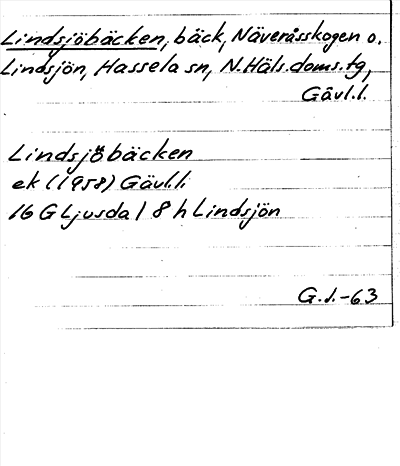 Lindsjöbäcken, bäck, Näveråsskogen o.
Lindsjön, Hassela sn, N.Häls.doms.tg,
Gävl.l.
Lindsjöbäcken
ek (1958) Gävl.l.
16 G Ljusdal 8 h Lindsjön
G.l.-63